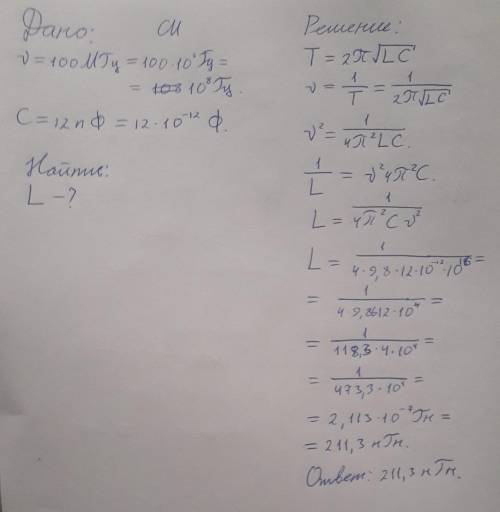 Дано: СИ
ν = 100 МГц = 100·10⁶ Гц =
= 10⁸ Гц.
C = 12 пФ = 12·10⁻¹² Ф.
Найти:
L – ?
Решение:
T = 2π√LC
ν = 1/T = 1/(2π√LC)
ν² = 1/(4π²LC).
1/L = ν²4π²C.
L = 1/(4π²Cν²)
L = 1/(4·9,8·12·10⁻¹²·10¹⁶) =
= 1/(4·9,8612·10⁴) =
= 1/(118,3·4·10⁴) =
= 1/(473,3·10⁴) =
= 2,113·10⁻⁷ Гн =
= 211,3 нГн.
Ответ: 211,3 нГн.